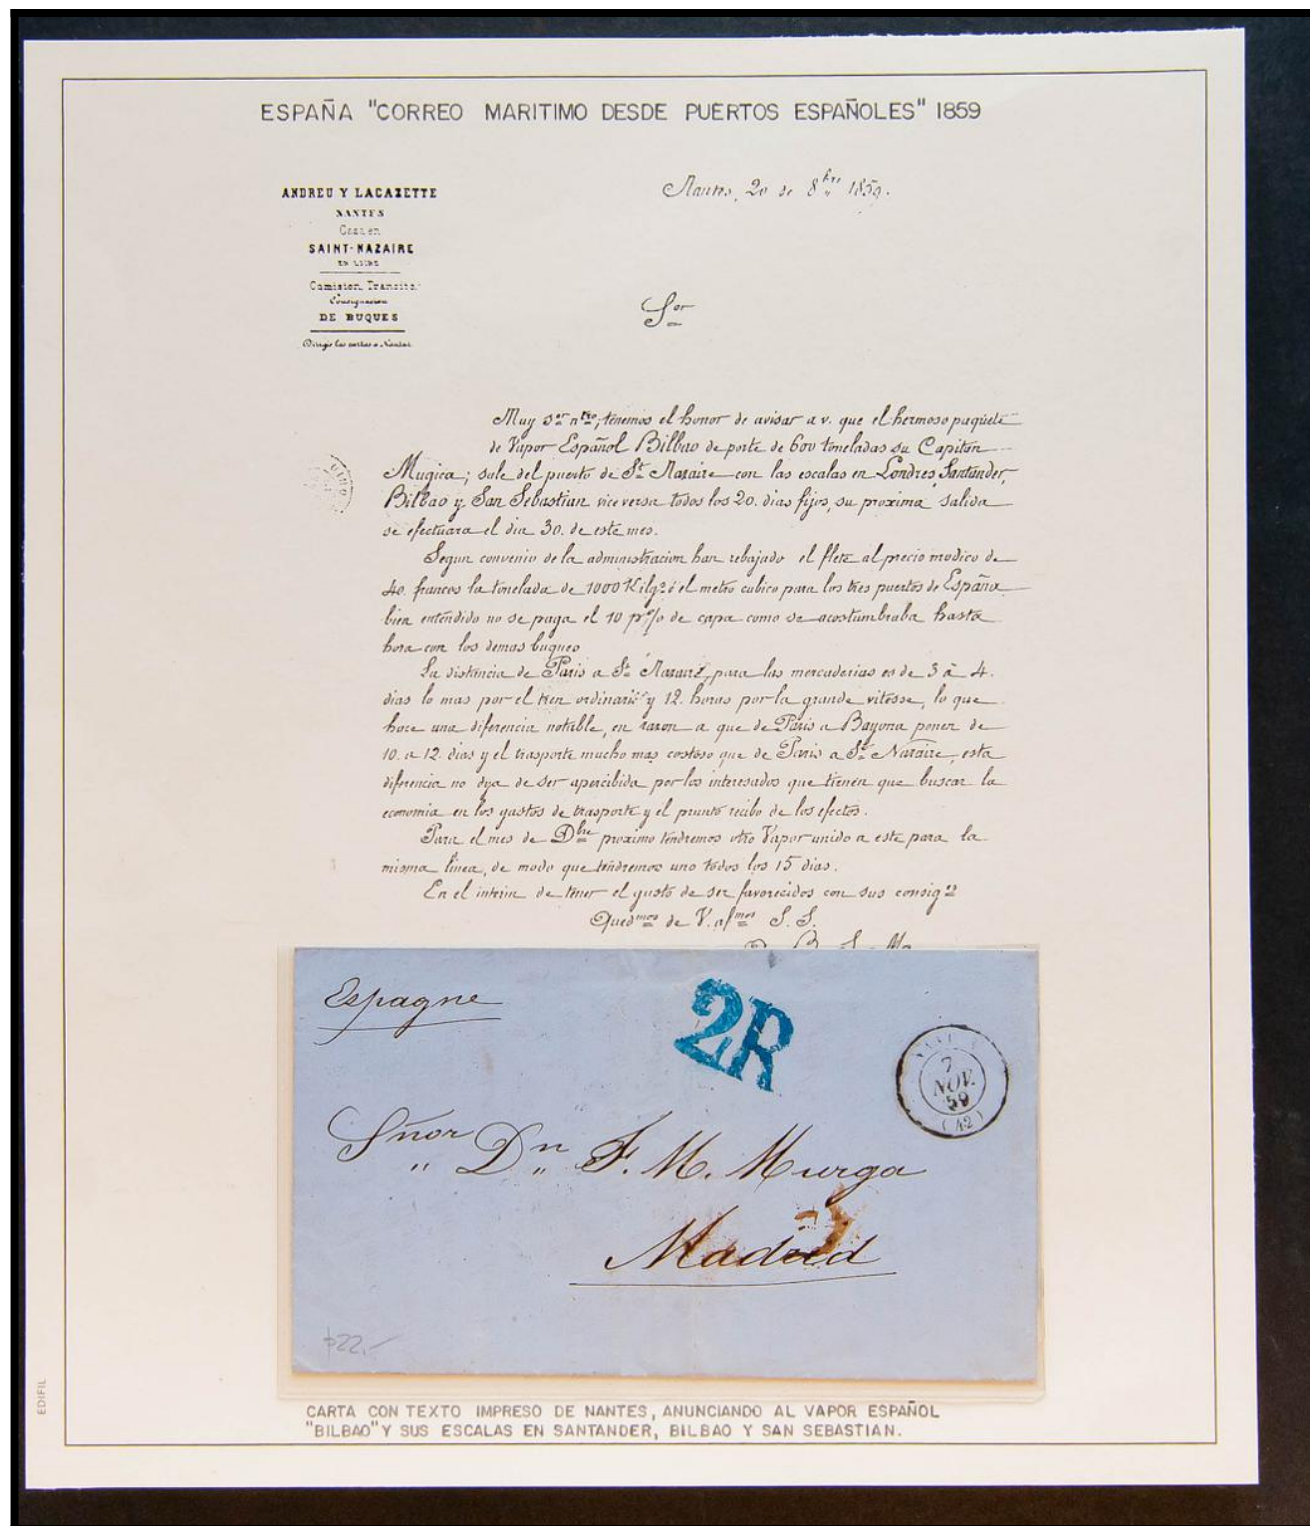 ESPAÑA "CORREO MARITIMO DESDE PUERTOS ESPAÑOLES" 1859
ANDREU Y LACAZETTE
NANTES
Casa en
SAINT-NAZAIRE
Comision, Transito
Consignacion
DE BUQUES
Dirigir las cartas a Nantes
Nantes, 20 de 8bre 1859.
Sor
Muy Sor ntro; tenemos el honor de avisar a v. que el hermoso paquete
de Vapor Español Bilbao de porte de 600 toneladas su Capitan
Mugica; sale del puerto de St Nazaire con las escalas en Londres, Santander,
Bilbao y San Sebastian vice versa todos los 20. dias fijos, su proxima salida
se efectuara el dia 30. de este mes.
Segun convenio de la administracion han rebajado el flete al precio modico de
40. francos la tonelada de 1000 Kilgs ó el metro cubico para los tres puertos de España
bien entendido no se paga el 10 p% de capa como se acostumbraba hasta
hora con los demas buques
La distancia de Paris a St Nazaire, para las mercaderias es de 3 à 4.
dias lo mas por el tren ordinario y 12. horas por la grande vitesse, lo que
hace una diferencia notable, en razon a que de Paris a Bayona ponen de
10. a 12. dias y el trasporte mucho mas costoso que de Paris a St Nazaire, esta
diferencia no deja de ser apercibida por los interesados que tienen que buscar la
economia en los gastos de trasporte y el pronto recibo de los efectos.
Para el mes de Dbre proximo tendremos otro Vapor unido a este para la
misma linea, de modo que tendremos uno todos los 15 dias.
En el interin de tener el gusto de ser favorecidos con sus consigs
Quedmos de V. afmos S. S.
Q. B. S. Ms
Espagne
2R
7
NOV.
59
(A2)
Sñor Dn F. M. Murga
Madrid
EDIFIL
CARTA CON TEXTO IMPRESO DE NANTES, ANUNCIANDO AL VAPOR ESPAÑOL
"BILBAO" Y SUS ESCALAS EN SANTANDER, BILBAO Y SAN SEBASTIAN.